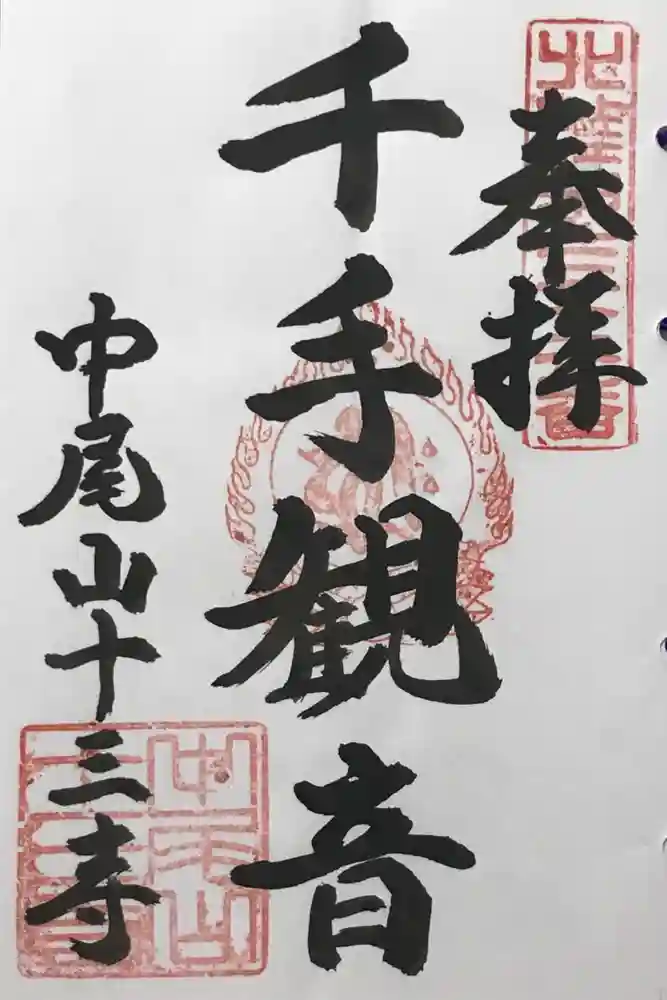 奉拝
千手観音
中尾山十三寺